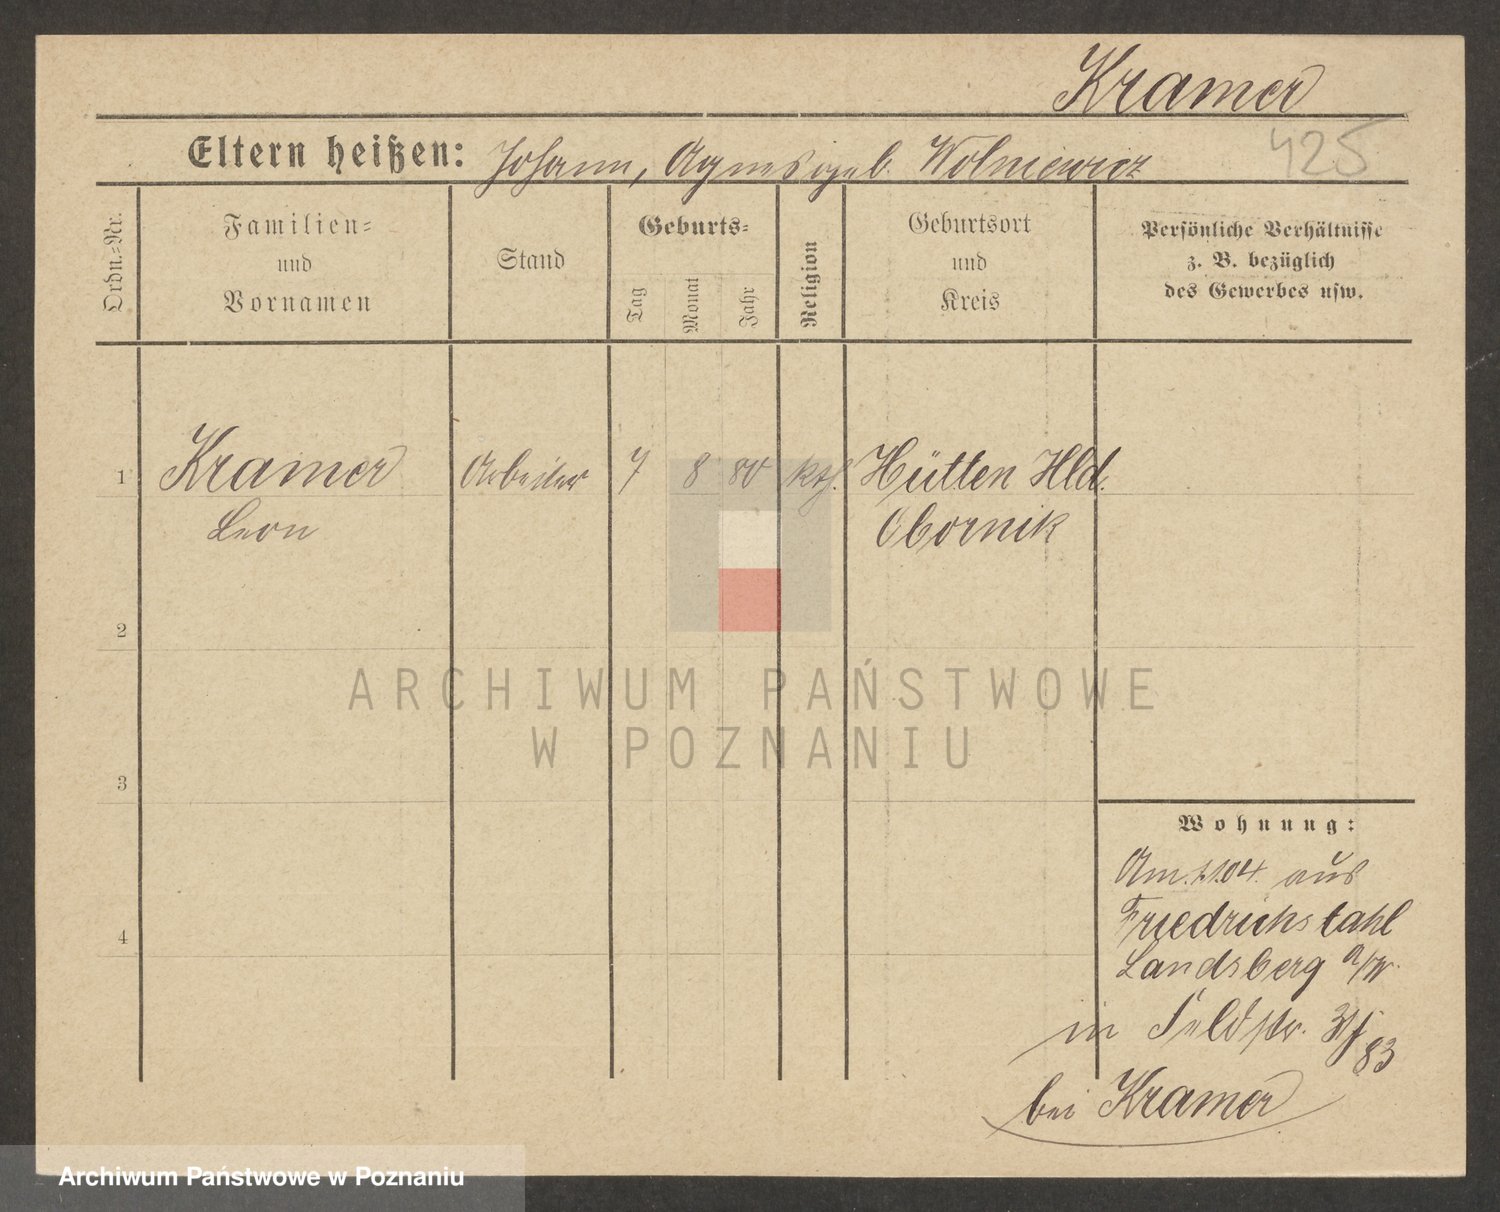 Kramer
425
Eltern heißen: Johann, Agnes geb. Wolniewicz
Ordn.-Nr.
Familien-
und
Vornamen
Stand
Geburts-
Tag
Monat
Jahr
Religion
Geburtsort
und
Kreis
Persönliche Verhältnisse
z. B. bezüglich
des Gewerbes usw.
1 Kramer Arbeiter 7 8 80 kth. Hütten Hld.
Leon Obornik
2
3
4
ARCHIWUM PAŃSTWOWE
W POZNANIU
Wohnung:
Am 04. aus
Friedrichstahl
Landsberg a/W.
in Feldstr.
83
bei Kramer
Archiwum Państwowe w Poznaniu